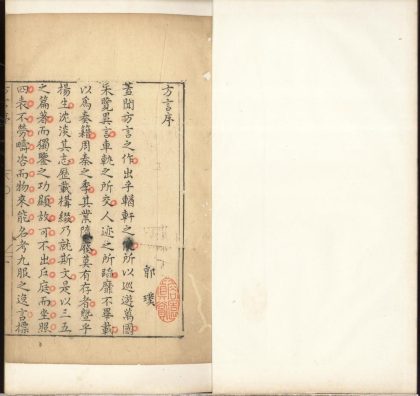 方言序
郭璞
蓋聞方言之作出乎輶軒之使所以巡遊萬國
采覽異言車軌之所交人迹之所蹈靡不畢載
以爲奏籍周秦之季其業隳廢莫有存者曁乎
楊生沈淡其志歴載構綴乃就斯文是以三五
之篇著而獨鑒之功顯故可不出戶庭而坐照
四表不勞疇咨而物來能名考九服之逸言標